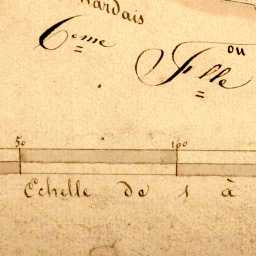 ardais
6eme
ou
Flle
50 100
Echelle de 1 à